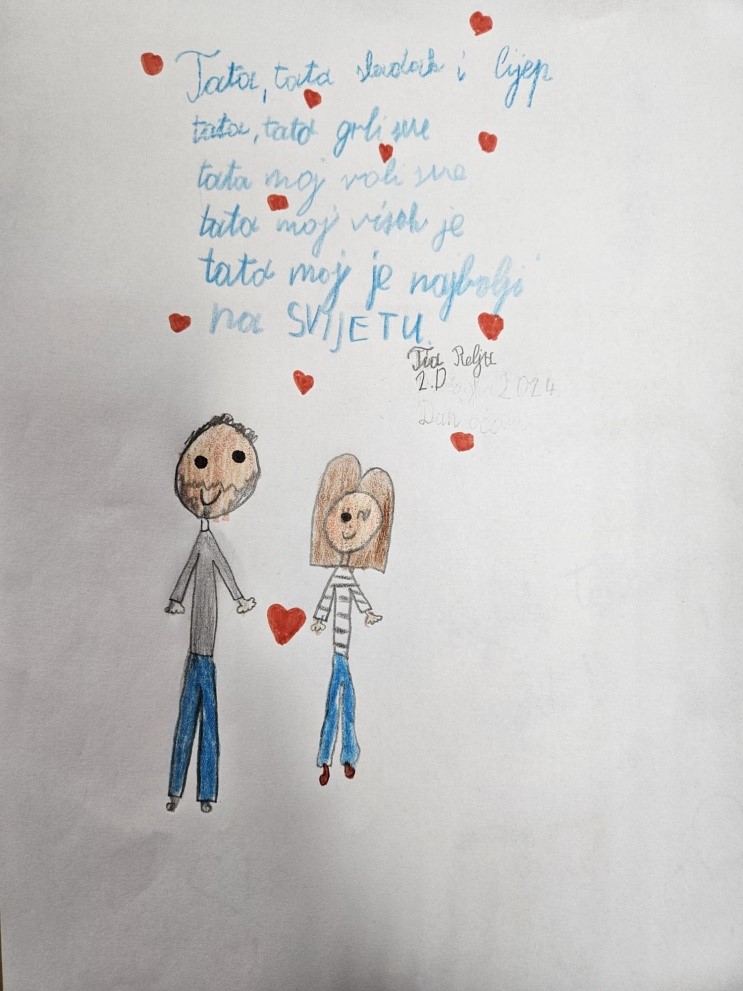 Tata, tata sladak i lijep
tata, tata grli sve
tata moj voli sve
tata moj visok je
tata moj je najbolji
na SVIJETU.
Tia Relja
2.D 2024